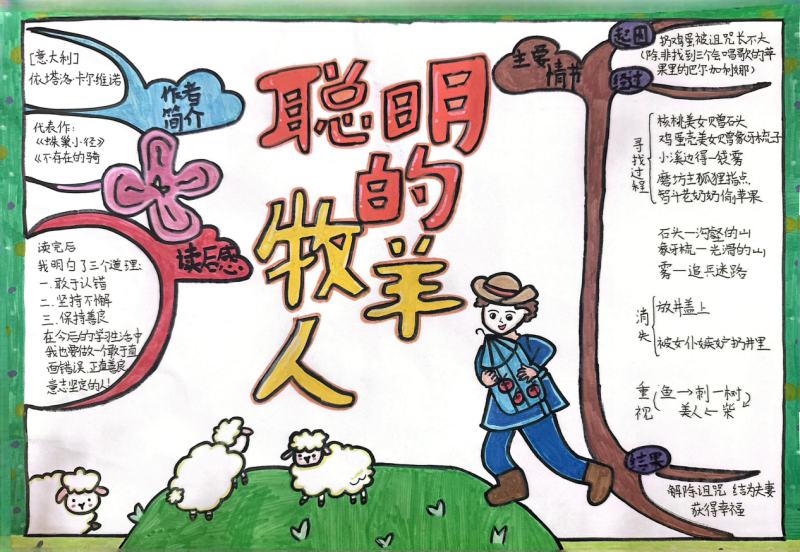 聪明
的
牧羊
人
作者
简介
[意大利]
依塔洛卡尔维诺
代表作:
《蛛巢小径》
《不存在的骑
读后感
读完后
我明白了三个道理:
一.敢于认错
二.坚持不懈
三.保持善良
在今后的学习生活中
我也要做一个敢于直
面错误、正直善良
意志坚定的人!
主要
情节
起因
扔鸡蛋被诅咒长不大
(除非找到三个会唱歌的苹
果里的巴尔加利娜)
经过
寻找过程
核桃美女赠石头
鸡蛋壳美女赠象牙梳子
小溪边得一袋雾
磨坊主狐狸指点
智斗老奶奶偷苹果
石头—沟壑的山
象牙梳—光滑的山
雾—追兵迷路
消失
放井盖上
被女仆嫉妒扔井里
重视
鱼→刺—树
美人←柴
结果
解除诅咒 结为夫妻
获得幸福